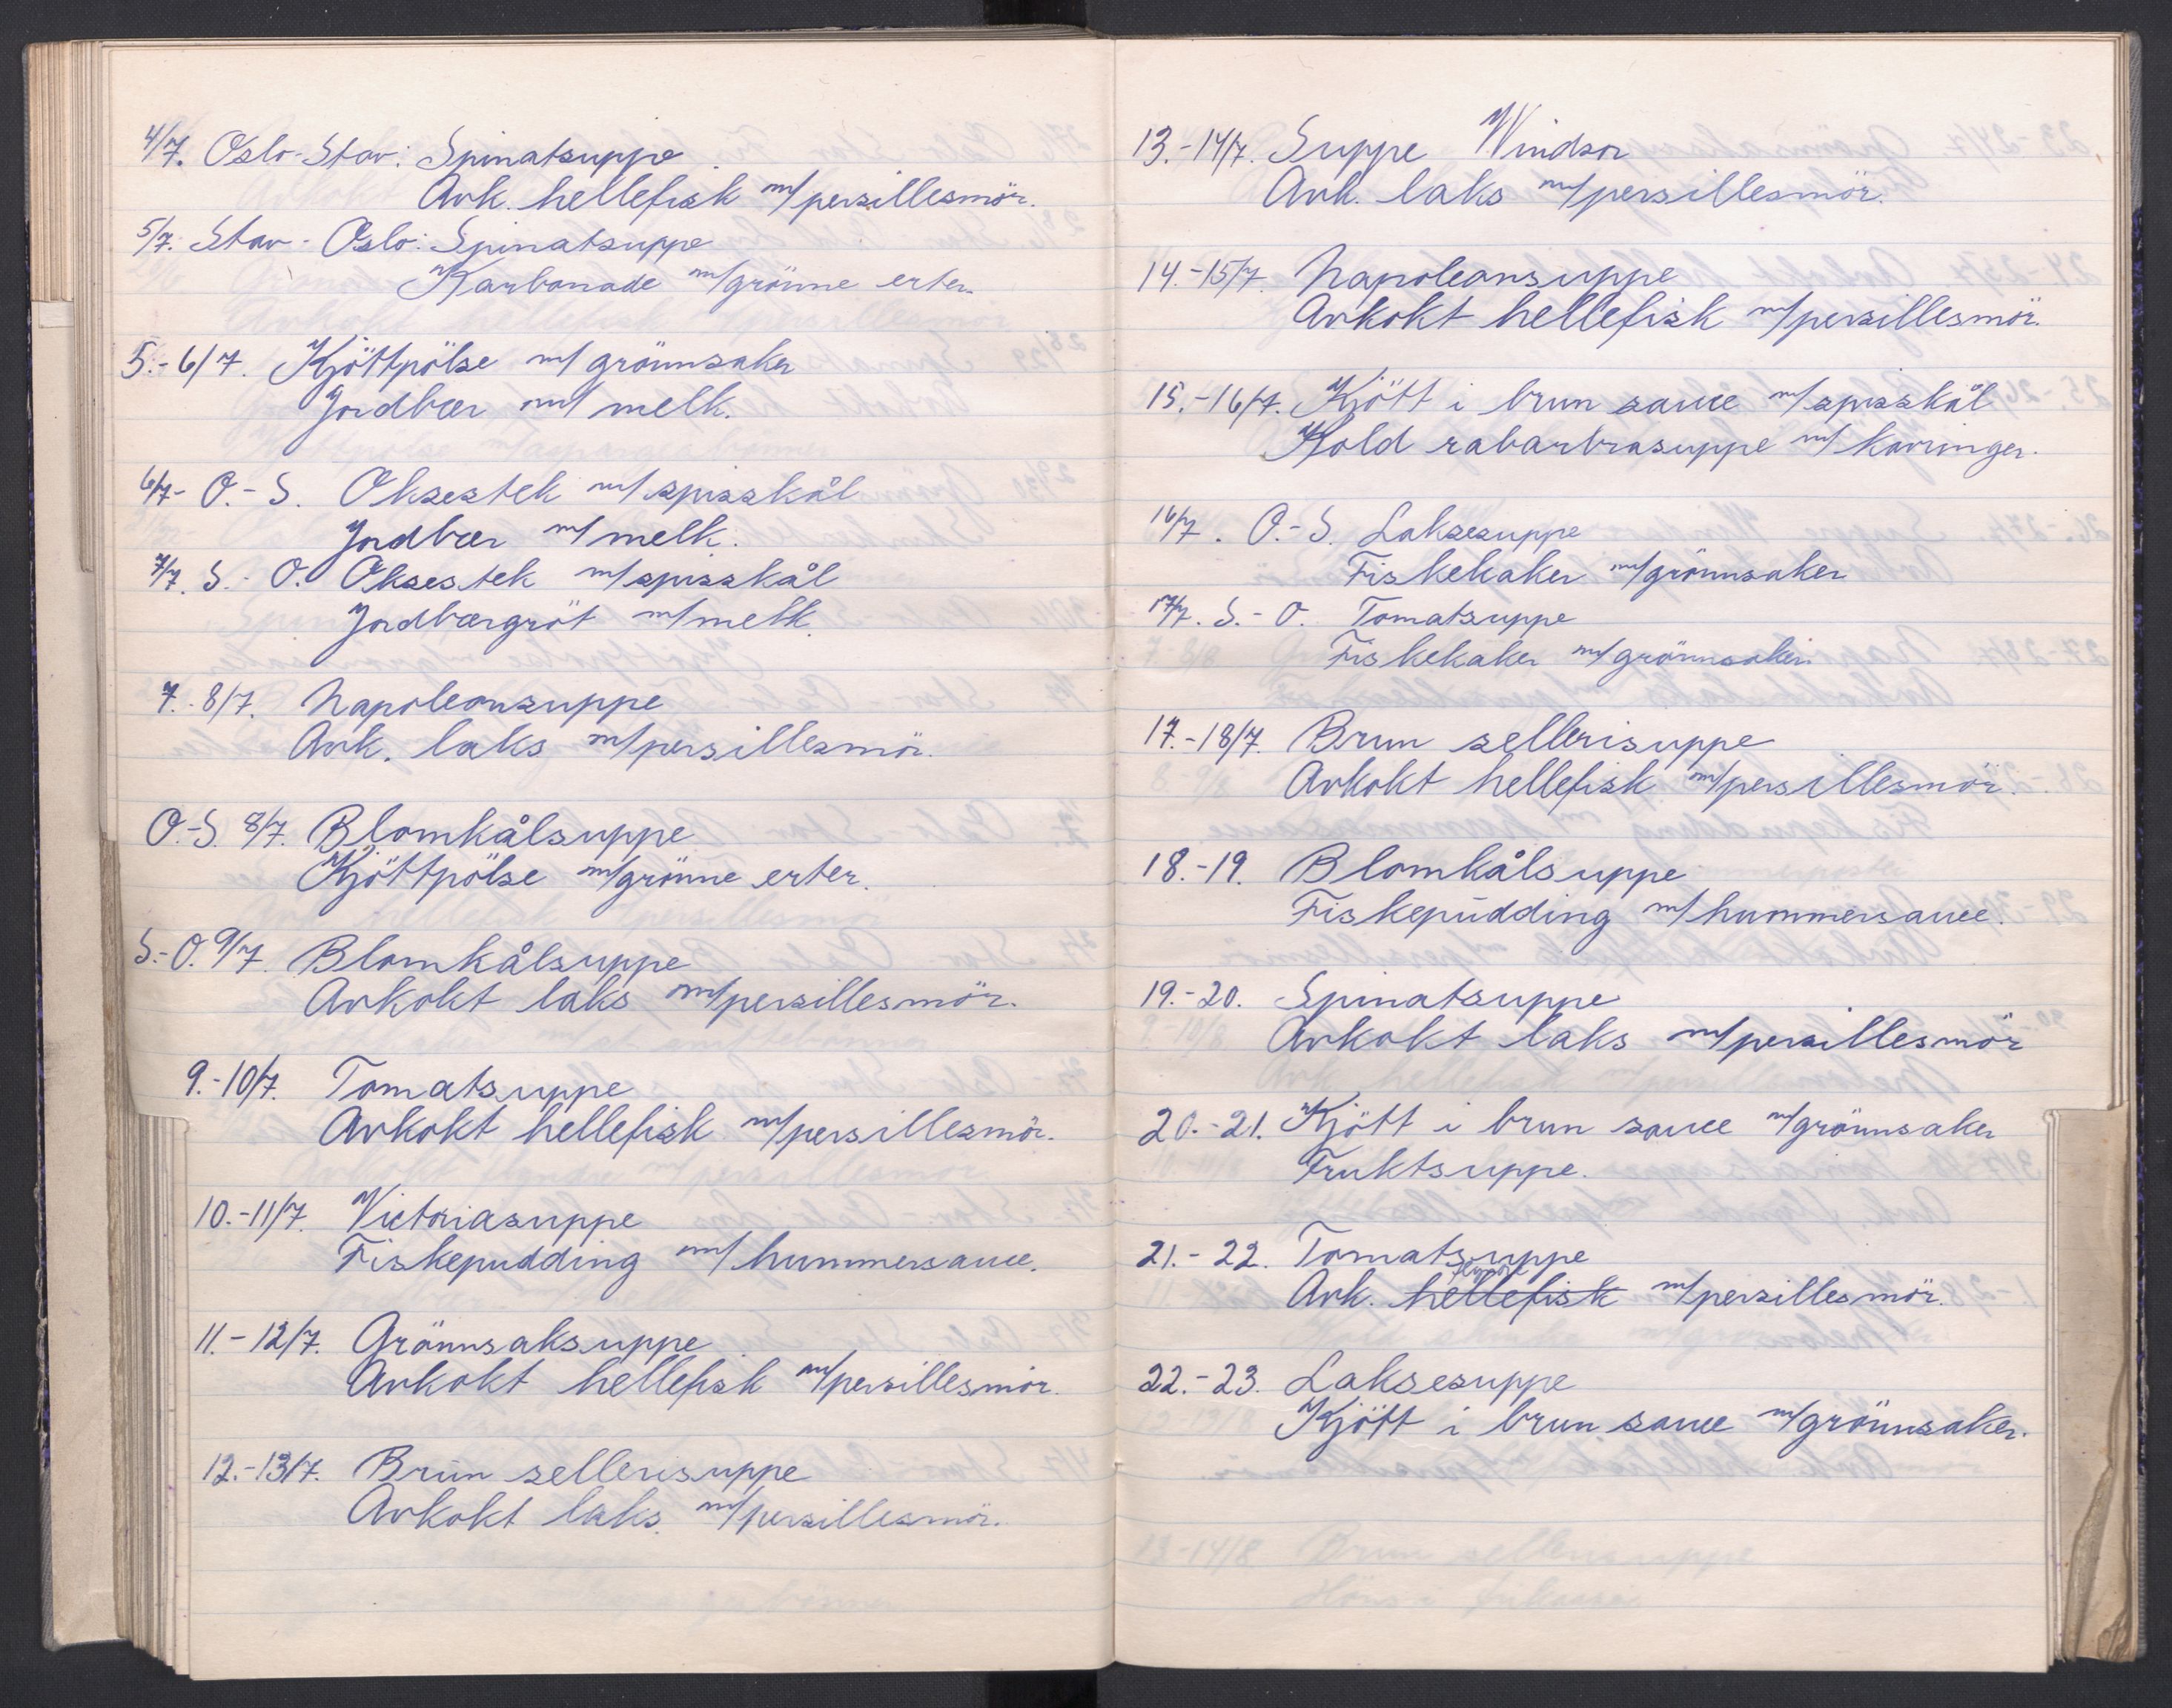 4/7. Oslo-Stav: Spinatsuppe
Avk. hellefisk m/persillesmör.
5/7. Stav-Oslo: Spinatsuppe
Karbonade m/grönne erter.
5.-6/7. Kjöttpölse m/ grönnsaker
Jordbær m/ melk.
6/7- O.-S. Oksestek m/ spisskål
Jordbær m/ melk.
7/7. S.-O. Oksestek m/spisskål
Jordbærgröt m/melk.
7.-8/7. Napoleonsuppe
Avk. laks m/persillesmör.
O.-S. 8/7. Blomkålsuppe
Kjöttpölse m/grönne erter.
S.-O. 9/7. Blomkålsuppe
Avkokt laks m/persillesmör.
9.-10/7. Tomatsuppe
Avkokt hellefisk m/persillesmör.
10.-11/7. Victoriasuppe
Fiskepudding m/ hummersauce.
11.-12/7. Grönnsaksuppe
Avkokt hellefisk m/persillesmör.
12.-13/7. Brun sellerisuppe
Avkokt laks m/persillesmör.
13.-14/7. Suppe Windsor
Avk. laks m/persillesmör.
14.-15/7. Napoleonsuppe
Avkokt hellefisk m/persillesmör.
15.-16/7. Kjött i brun sauce m/spisskål
Kold rabarbrasuppe m/ kavringer.
16/7. O.-S. Laksesuppe
Fiskekaker m/grönnsaker
17/7. S.-O. Tomatsuppe
Fiskekaker m/grönnsaker.
17.-18/7. Brun sellerisuppe
Avkokt hellefisk m/persillesmör.
18.-19. Blomkålsuppe
Fiskepudding m/hummersauce.
19.-20. Spinatsuppe
Avkokt laks m/persillesmör
20.-21. Kjött i brun sauce m/grönnsaker
Fruktsuppe.
21.-22. Tomatsuppe
Avk. hellefisk m/persillesmör.
22.-23. Laksesuppe
Kjött i brun sauce m/grönnsaker.